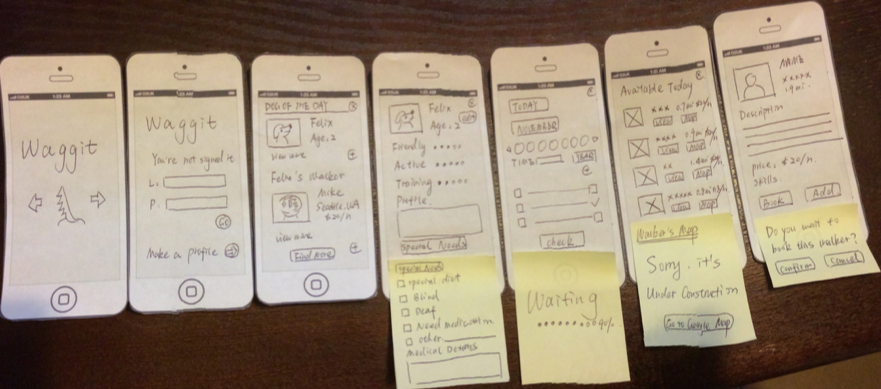 Waggit
Waggit
You're not signed in
L:
P:
GO
Make a profile
DOG OF THE DAY
Felix
Age, 2
view more
Felix's Walker
Mike
Seattle, WA
$20/h
view more
Find more
Felix
Age, 2
Friendly
Active
Training
Profile
Special Needs
Special Needs
special diet
Blind
Deaf
Need medication
other
Medical Details
TODAY
NOVEMBER
TIME:
check
Waiting
90%
Available Today
Map
Map
Map
Map
Walker's Map
Sorry, it's
Under Construction
Go to Google Map
NAME
xxxxx
.9mi
Description
price: $20/h
skills:
Book
Add
Do you want to
book this walker?
Confirm
Cancel